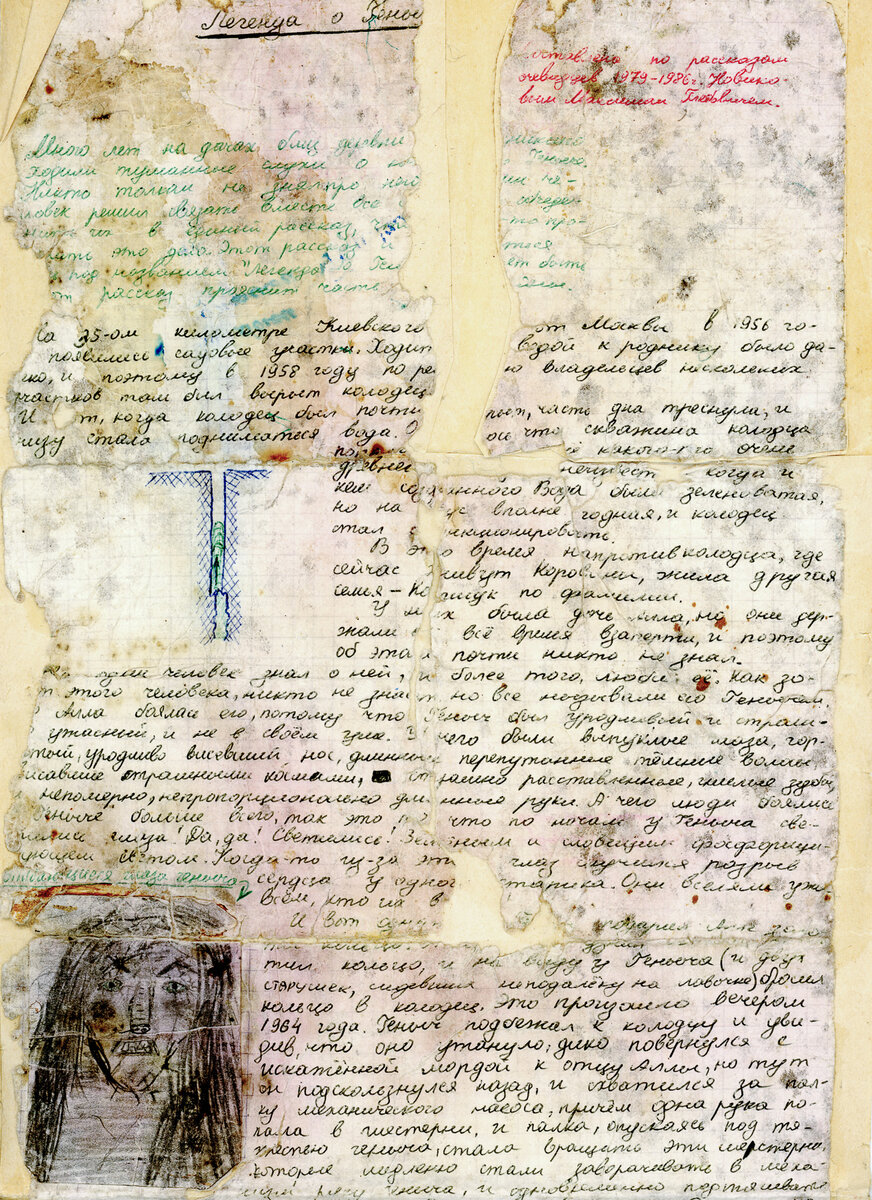 Легенда о Геныч
составлено по рассказам
очевидцев 1979-1986г. Новико-
вым Максимом Глебовичем.
Много лет на дачах близ деревни
ходили туманные слухи о
Никто толком не знал про ней
ловек решил связать вместе все
нить их в единый рассказ,
это дело. Этот рассказ и
под названием "Легенда о Ген
рассказ прояснит часть
Геныче.
ет быть
На 35-ом километре Киевского от Москвы в 1956 го-
появились садовые участки. Ходит водой к роднику было да-
ко, и поэтому в 1958 году по ре ю владельцев нескольких
участков там был вырыт колодец
И т, когда колодец был почти часть дна треснули, и
низу стала подниматься вода. О что скважина колодца
по какого-то очень
древнег неизвест когда и
кем со нного Вода была зеленоватая,
но на с вполне годная, и колодец
стал нкционировать.
В это время напротив колодца, где
сейчас живут Коровины, жила другая
семья – Ко щук по фамилии.
У них была дочь Алла, но они дер-
жали её всё время взаперти, и поэтому
об этом почти никто не знал.
один человек знал о ней, и более того, любил её. Как зо-
вут этого человека, никто не знает, но все называли его Генычем.
Алла боялась его, потому что Геныч был уродливый и страш-
ужасный, и не в своём уме. У него были выпуклые глаза, гор-
батый, уродливо висевший нос, длинные перепутанные тёмные волосы
висавшие страшными космами, страшно расставленные, гнилые зубы,
и непомерно, непропорционально длинные руки. А чего люди боялись
в Геныче больше всего, так это то, что по ночам у Геныча све-
тились глаза! Да, да! Светились! Зелёным и зловещим фосфорици-
рующем светом. Когда-то из-за эт глаз случился разрыв
сердца у одног старика. Они вселяли уж
всем, кто на в
глаза геныча
И вот
тил кольцо, и на виду у Геныча (и двух
старушек, сидевших неподалёку на лавочке) бросил
кольцо в колодец. Это произошло вечером
1964 года. Геныч подбежал к колодцу и уви-
див, что оно утонуло, дико повернулся с
искажённой мордой к отцу Аллы, но тут
он подскользнулся назад, и схватился за пал-
ку механического насоса, причём одна рука по-
пала в шестерни, и палка, опускаясь под тя-
жестью геныча, стала вращать эти шестерни,
которые медленно стали заворачивать в меха-
низм руку геныча, и одновременно подтягивать